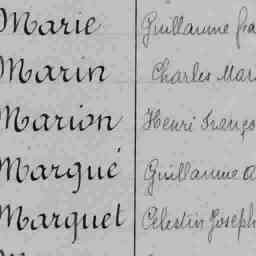 Marie Guillaume
Marin Charles
Marion Henri
Marqué Guillaume
Marquet Célestin Joseph